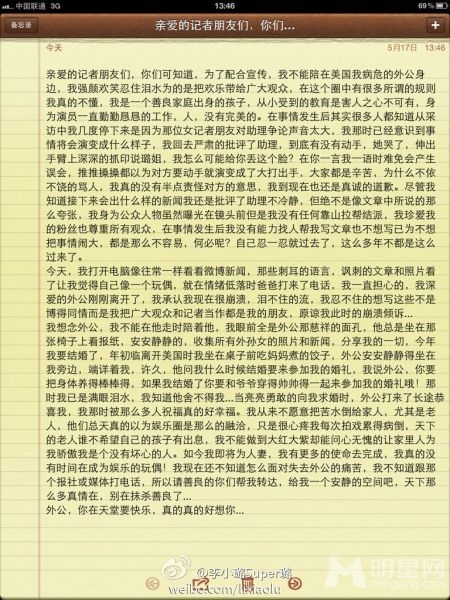 中国联通 3G
13:46
69%
备忘录
亲爱的记者朋友们，你们...
今天
5月17日 13:46
亲爱的记者朋友们，你们可知道，为了配合宣传，我不能陪在美国我病危的外公身
边，我强颜欢笑忍住泪水为的是把欢乐带给广大观众，在这个圈中有很多所谓的规则
我真的不懂，我是一个善良家庭出身的孩子，从小受到的教育是害人之心不可有，身
为演员一直勤勤恳恳的工作，人，没有完美的。在事情发生后其实很多人都知道从采
访中我几度停下来是因为那位女记者朋友对助理争论声音太大，我那时已经意识到事
情将会演变成什么样子，我回去严肃的批评了助理，到底有没有动手，她哭了，伸出
手臂上深深的抓印说璐姐，我怎么可能给你丢这个脸？在你一言我一语时难免会产生
误会，推推搡搡都以为对方要动手就演变成了大打出手，大家都是辛苦，为什么不依
不饶的骂人，我真的没有半点责怪对方的意思，我到现在也还是真诚的道歉。尽管我
知道接下来会出什么样的新闻我还是批评了助理不冷静，但绝不是像文章中所说的那
么夸张，我身为公众人物虽然曝光在镜头前但是我没有任何靠山拉帮结派，我珍爱我
的粉丝也尊重所有观众，在事情发生后我没有能力找人帮我写文章也不想写已为不想
把事情闹大，都是那么不容易，何必呢？自己忍一忍就过去了，这么多年不都是这么
过来了。
今天，我打开电脑像往常一样看看微博新闻，那些刺耳的语言，讽刺的文章和照片看
了让我觉得自己像一个玩偶，就在情绪低落时爸爸打来了电话，我一直担心的，我深
爱的外公刚刚离开了，我承认我现在很崩溃，泪不住的流，我忍不住的想写这些不是
博得同情而是我把广大观众和记者当作都是我的朋友，原谅我此时的崩溃倾诉...
我想念外公，我不能在他走时陪着他，我眼前全是外公那慈祥的面孔，他总是坐在那
张椅子上看报纸，安安静静的，收集所有外孙女的照片和新闻，分享我的一切，今年
我要结婚了，年初临离开美国时我坐在桌子前吃妈妈煮的饺子，外公安安静静得坐在
我旁边，端详着我，许久，他问我什么时候结婚要来参加我的婚礼，我说外公，你要
把身体养得棒棒得，如果我结婚了你要和爷爷穿得帅帅得一起来参加我的婚礼哦！那
时我已是满眼泪水，我知道他舍不得我...当亮亮勇敢的向我求婚时，外公打来了长途恭
喜我，我那时被那么多人祝福真的好幸福。我从来不愿意把苦水倒给家人，尤其是老
人，他们总天真的以为娱乐圈是那么的融洽，只是很心疼我每次拍戏累得病倒，天下
的老人谁不希望自己的孩子有出息，我不能做到大红大紫却能问心无愧的让家里人为
我骄傲我是个没有坏心的人。如今我即将为人妻，我有更多的使命去完成，我真的没
有时间在成为娱乐的玩偶！我现在还不知道怎么面对失去外公的痛苦，我不知道跟那
个报社或媒体打电话，所以请善良的你们帮我转达，给我一个安静的空间吧，天下那
么多真情在，别在抹杀善良了...
外公，你在天堂要快乐，真的真的好想你...
@李小璐Super璐
weibo.com/lixiaolu
明星网
mingxing.com